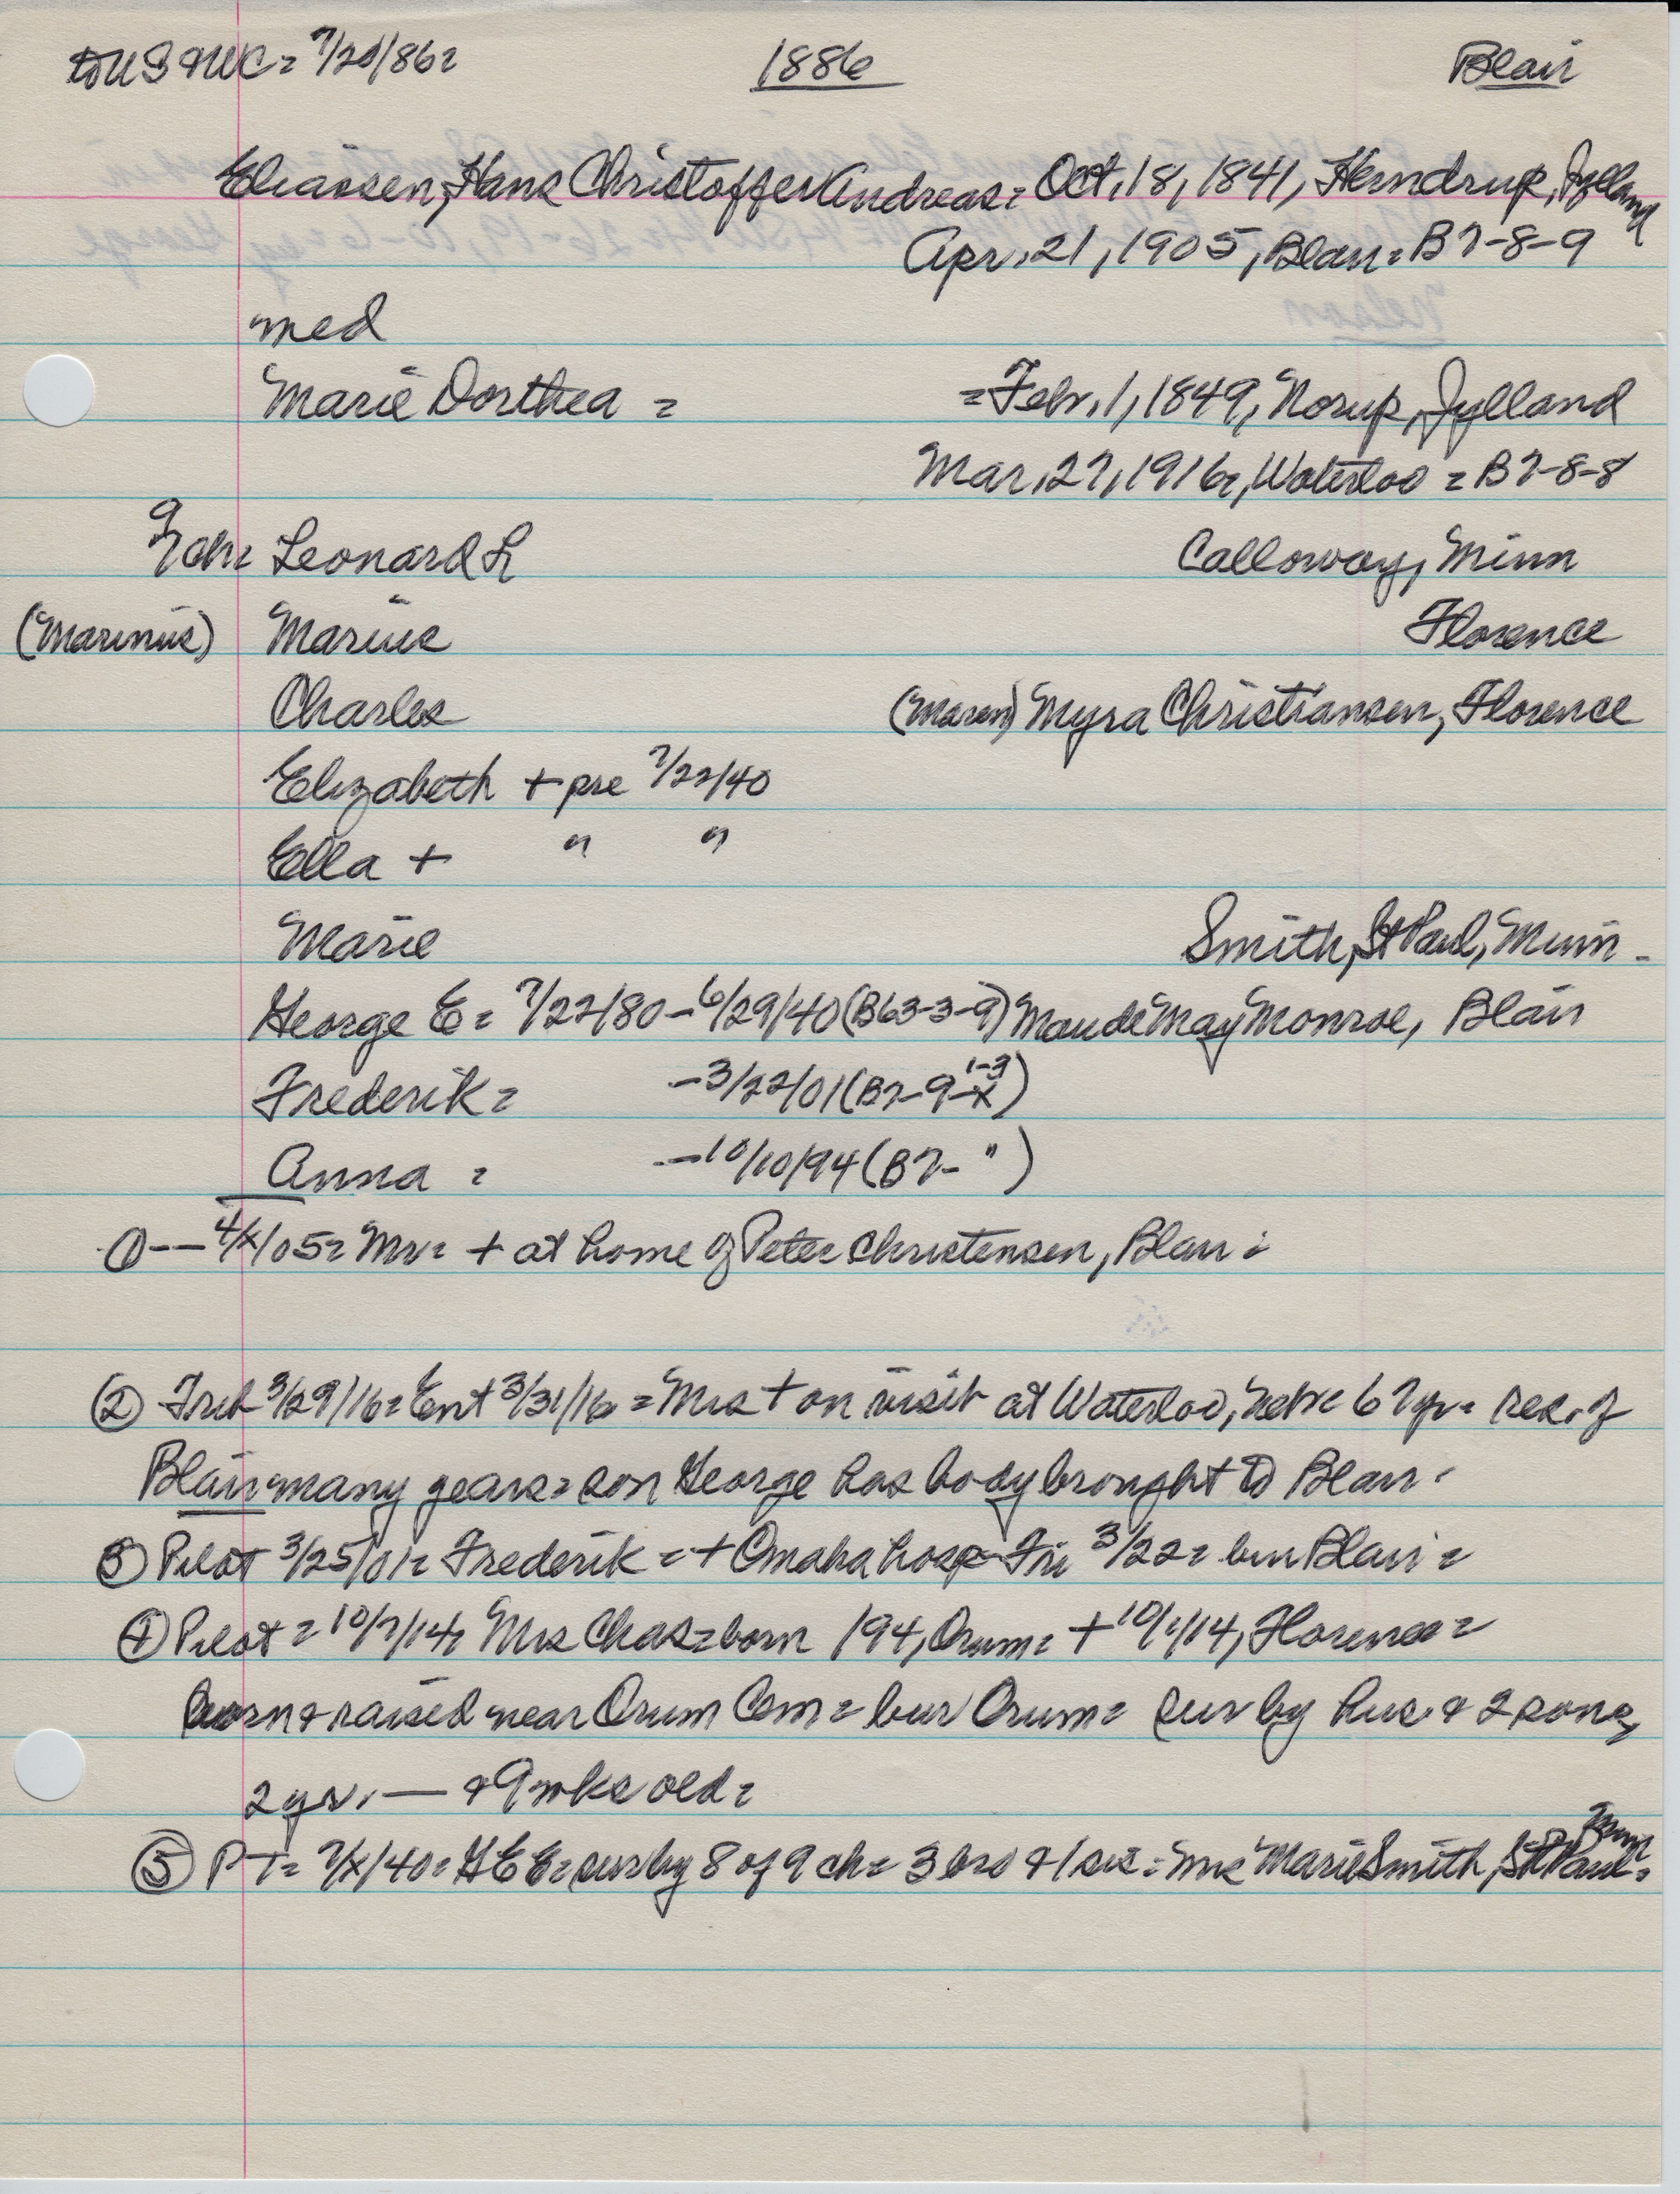 to US & WC = 7/20/86=
1886
Blair
Eliassen, Hans Christoffer Andreas = Oct. 18, 1841, Hemdrup, Jylland
Apr. 21, 1905, Blair = B7-8-9
med
Marie Dorthea =
= Febr. 1, 1849, Norup, Jylland
Mar. 27, 1916, Waterloo = B7-8-8
9
ch= Leonard L
Calloway, Minn
(Marinus) Marius
Florence
Charles
(Maren) Myra Christiansen, Florence
Elizabeth + pre 7/22/40
Ella + " "
Marie
Smith, St Paul, Minn.
George E = 7/27/80 - 6/29/40 (B63-3-9) Maude May Monroe, Blair
Frederik = - 3/22/01 (B7-9-x) 1-3
Anna = - 10/10/94 (B7- " )
① -- 4/x/05 = Mr = + at home of Peter Christensen, Blair =
② 3/29/16 = Ent 3/31/16 = Mrs + on visit at Waterloo, Nebr = 67 yr = res. of
Blair many years = son George has body brought to Blair.
③ Pilot 3/25/01 = Frederik = + Omaha hosp Fri 3/22 = bur Blair =
④ Pilot = 10/7/14 = Mrs Chas = born 194, Orum = + 10/1/14, Florence =
born & raised near Orum Cem = bur Orum = sur by hus. & 2 sons,
2 yr. — & 9 wks old =
⑤ PT = 7/x/40 = G E E = sur by 8 of 9 ch = 3 bro & 1 sis = Mrs Marie Smith, St Paul = Minn